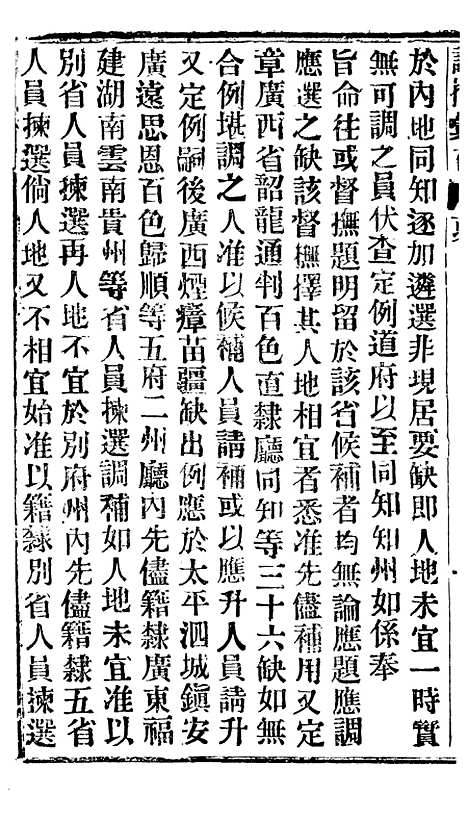 於內地同知逐加遴選非現居要缺卽人地未宜一時實
無可調之員伏查定例道府以至同知知州如係奉
旨命往或督撫題明留於該省候補者均無論應題應調
應選之缺該督撫擇其人地相宜者悉准先儘補用又定
章廣西省韶龍通判百色直隸廳同知等三十六缺如無
合例堪調之人准以候補人員請補或以應升人員請升
又定例嗣後廣西煙瘴苗疆缺出例應於太平泗城鎭安
廣遠思恩百色歸順等五府二州廳內先儘籍隸廣東福
建湖南雲南貴州等省人員揀選調補如人地未宜准以
別省人員揀選再人地不宜於別府州內先儘籍隸五省
人員揀選倘人地又不相宜始准以籍隸別省人員揀選